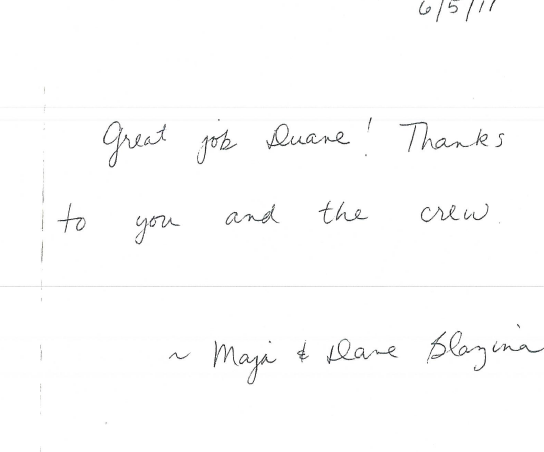 6/5/11
Great job Duane! Thanks
to you and the crew.
~ Maja & Dave Blazina